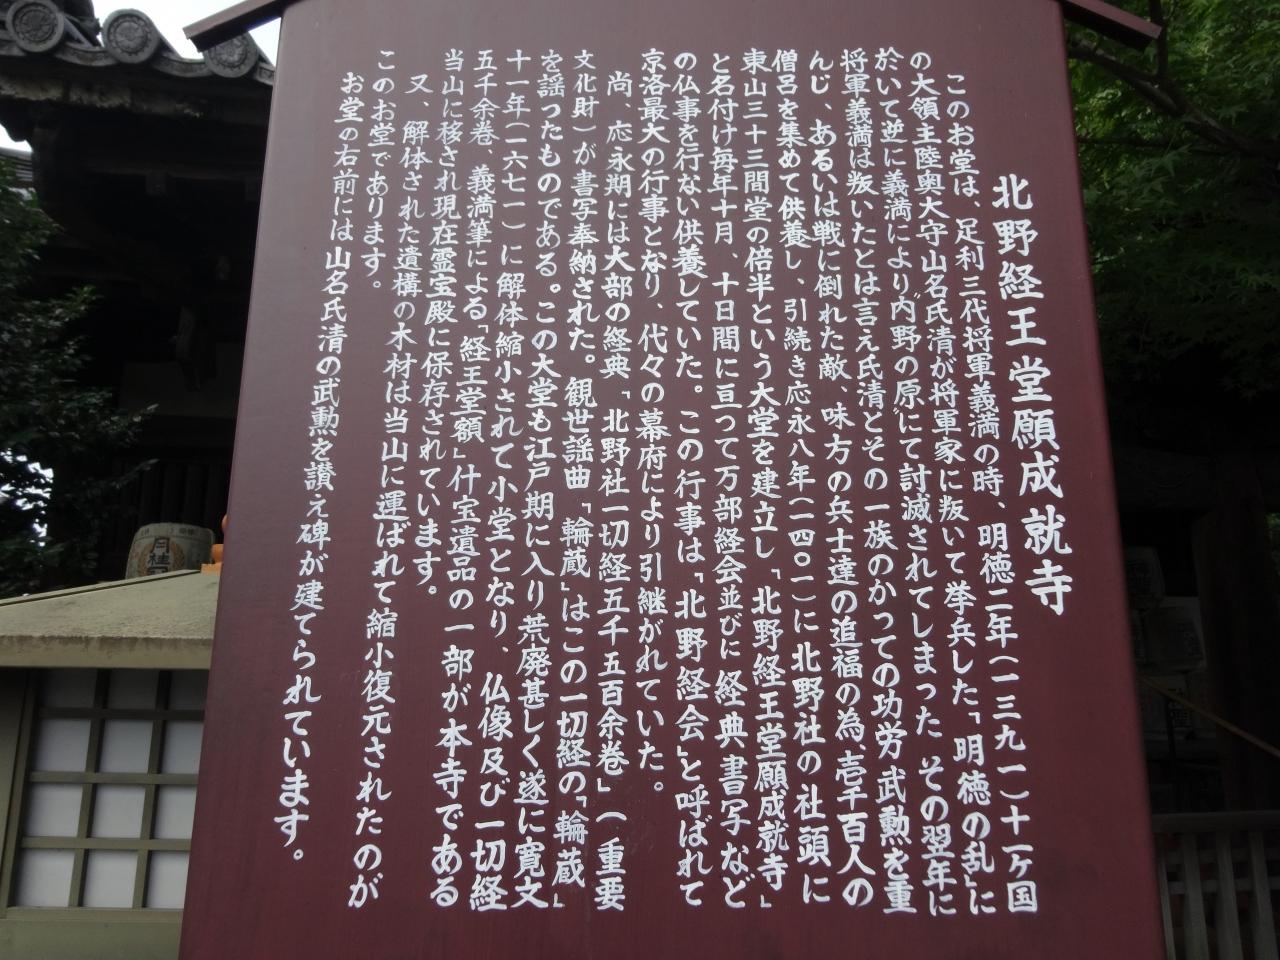 北野経王堂願成就寺
このお堂は、足利三代将軍義満の時、明徳二年(一三九一)十一ヶ国
の大領主陸奥大守山名氏清が将軍家に叛いて挙兵した「明徳の乱」に
於いて逆に義満により“内野の原”にて討滅されてしまった その翌年に
将軍義満は叛いたとは言え氏清とその一族のかつての功労武勲を重
んじ、あるいは戦に倒れた敵、味方の兵士達の追福の為、壱千百人の
僧呂を集めて供養し、引続き応永八年(一四〇一)に北野社の社頭に
東山三十三間堂の倍半という大堂を建立し「北野経王堂願成就寺」
と名付け毎年十月、十日間に亘つて万部経会並びに経典書写など
の仏事を行ない供養していた。この行事は「北野経会」と呼ばれて
京洛最大の行事となり、代々の幕府により引継がれていた。
尚、応永期には大部の経典、「北野社一切経五千五百余巻」(重要
文化財)が書写奉納された。観世謡曲「輪蔵」はこの一切経の「輪蔵」
を謡ったものである。この大堂も江戸期に入り荒廃甚しく遂に寛文
十一年(一六七一)に解体縮小されて小堂となり、仏像及び一切経
五千余巻 義満筆による「経王堂額」什宝遺品の一部が本寺である
当山に移され現在霊宝殿に保存されています。
又、解体された遺構の木材は当山に運ばれて縮小復元されたのが
このお堂であります。
お堂の右前には山名氏清の武勲を讃え碑が建てられています。